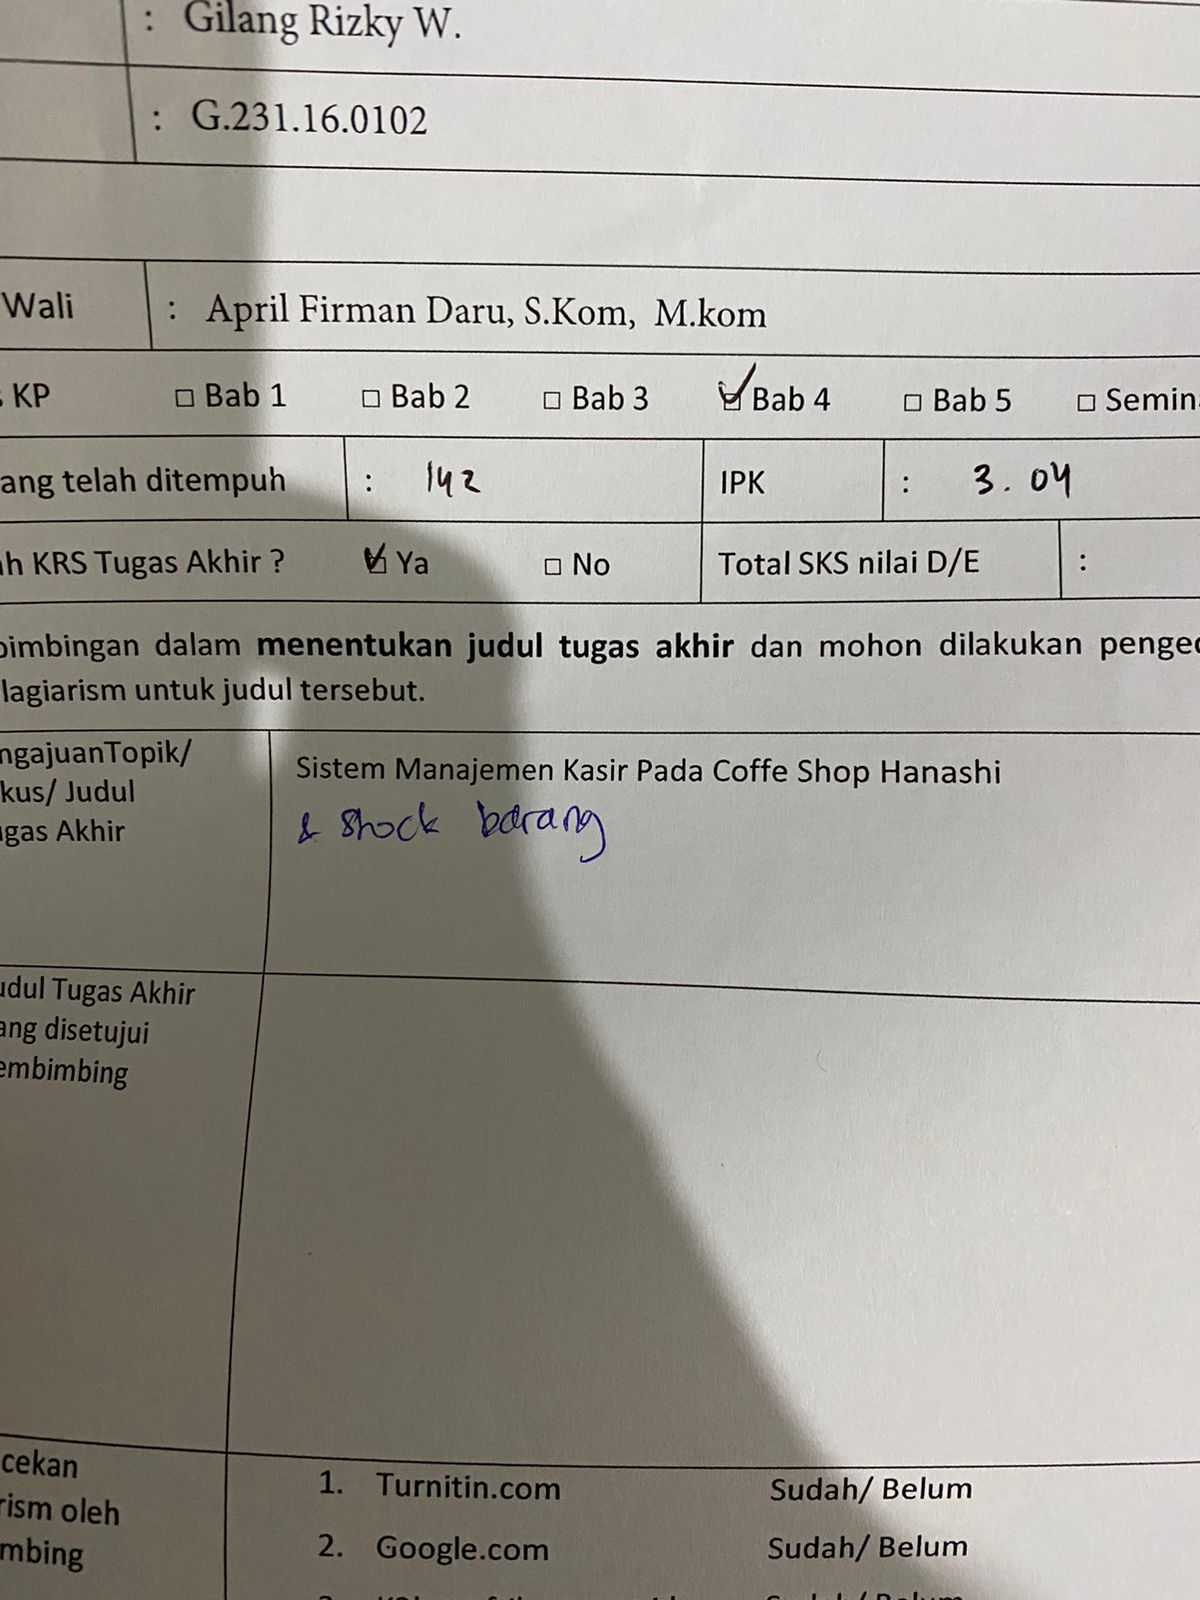 : Gilang Rizky W.
: G.231.16.0102
Wali : April Firman Daru, S.Kom, M.kom
KP □ Bab 1 □ Bab 2 □ Bab 3 ☑ Bab 4 □ Bab 5 □ Semin
ang telah ditempuh : 142 IPK : 3.04
h KRS Tugas Akhir ? ☑ Ya □ No Total SKS nilai D/E :
bimbingan dalam menentukan judul tugas akhir dan mohon dilakukan penge
lagiarism untuk judul tersebut.
ngajuanTopik/
kus/ Judul
gas Akhir
Sistem Manajemen Kasir Pada Coffe Shop Hanashi
& stock barang
udul Tugas Akhir
ang disetujui
embimbing
cekan
rism oleh
mbing
1. Turnitin.com Sudah/ Belum
2. Google.com Sudah/ Belum